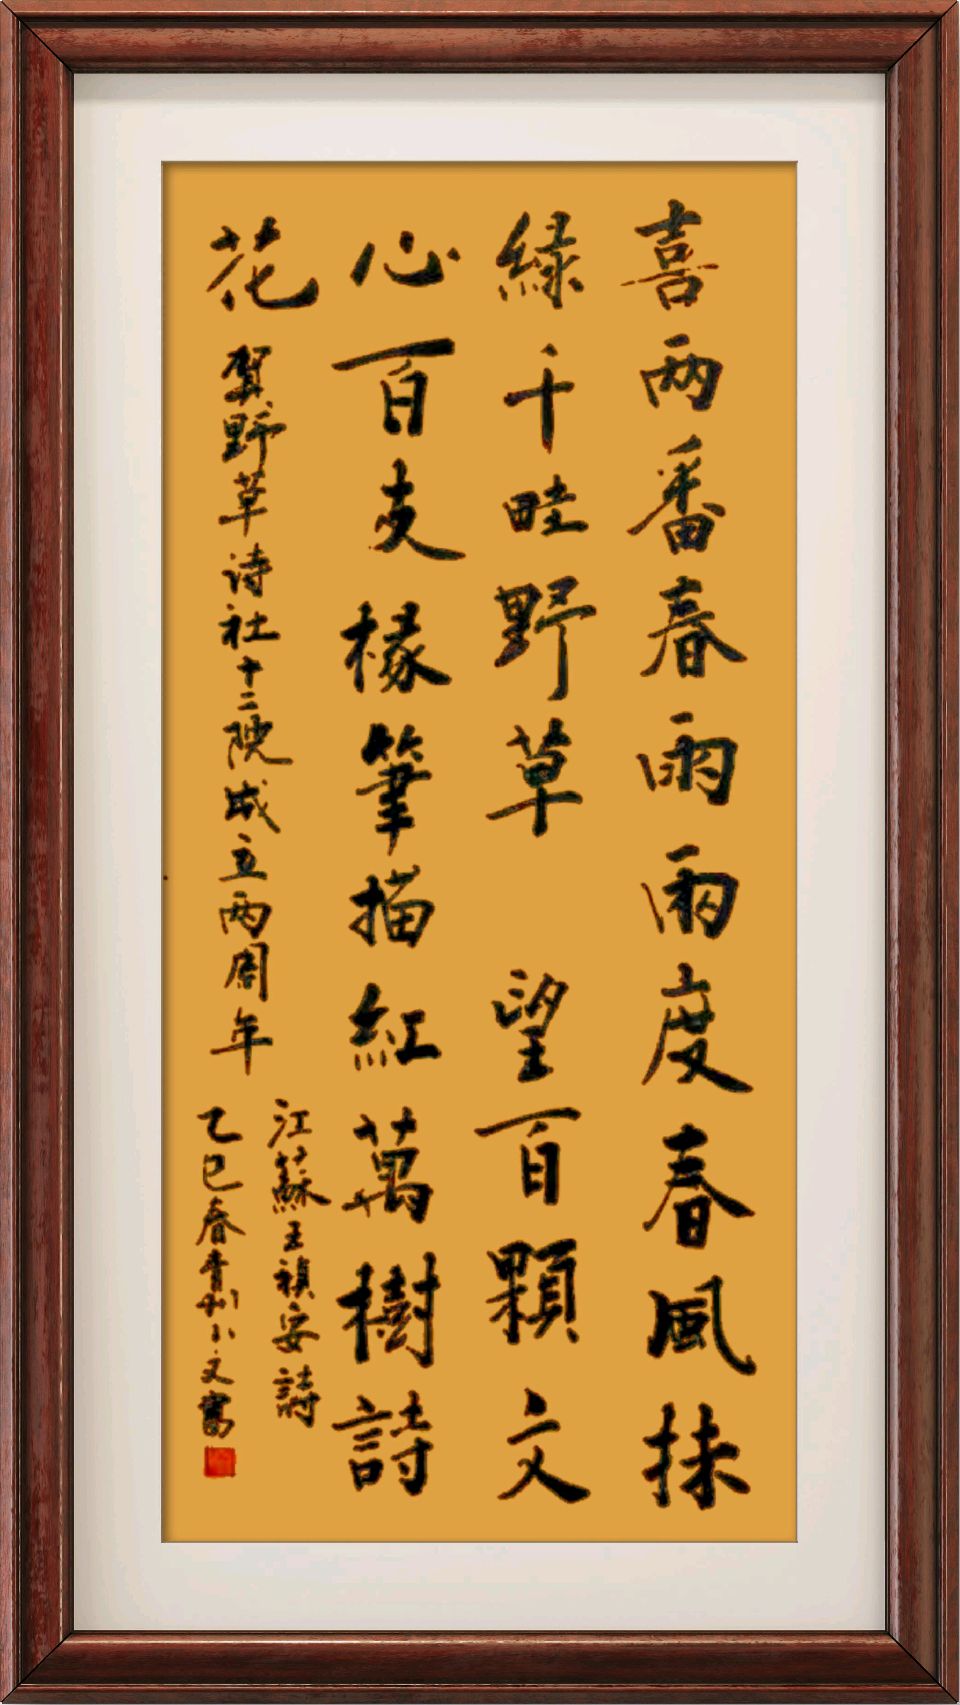 喜两番春雨雨度春風抹
綠千畦野草 望百顆文
心百支椽筆描紅萬樹詩
花
賀野草诗社十二院成立两周年
江蘇王禎安詩
乙巳春青州小文書